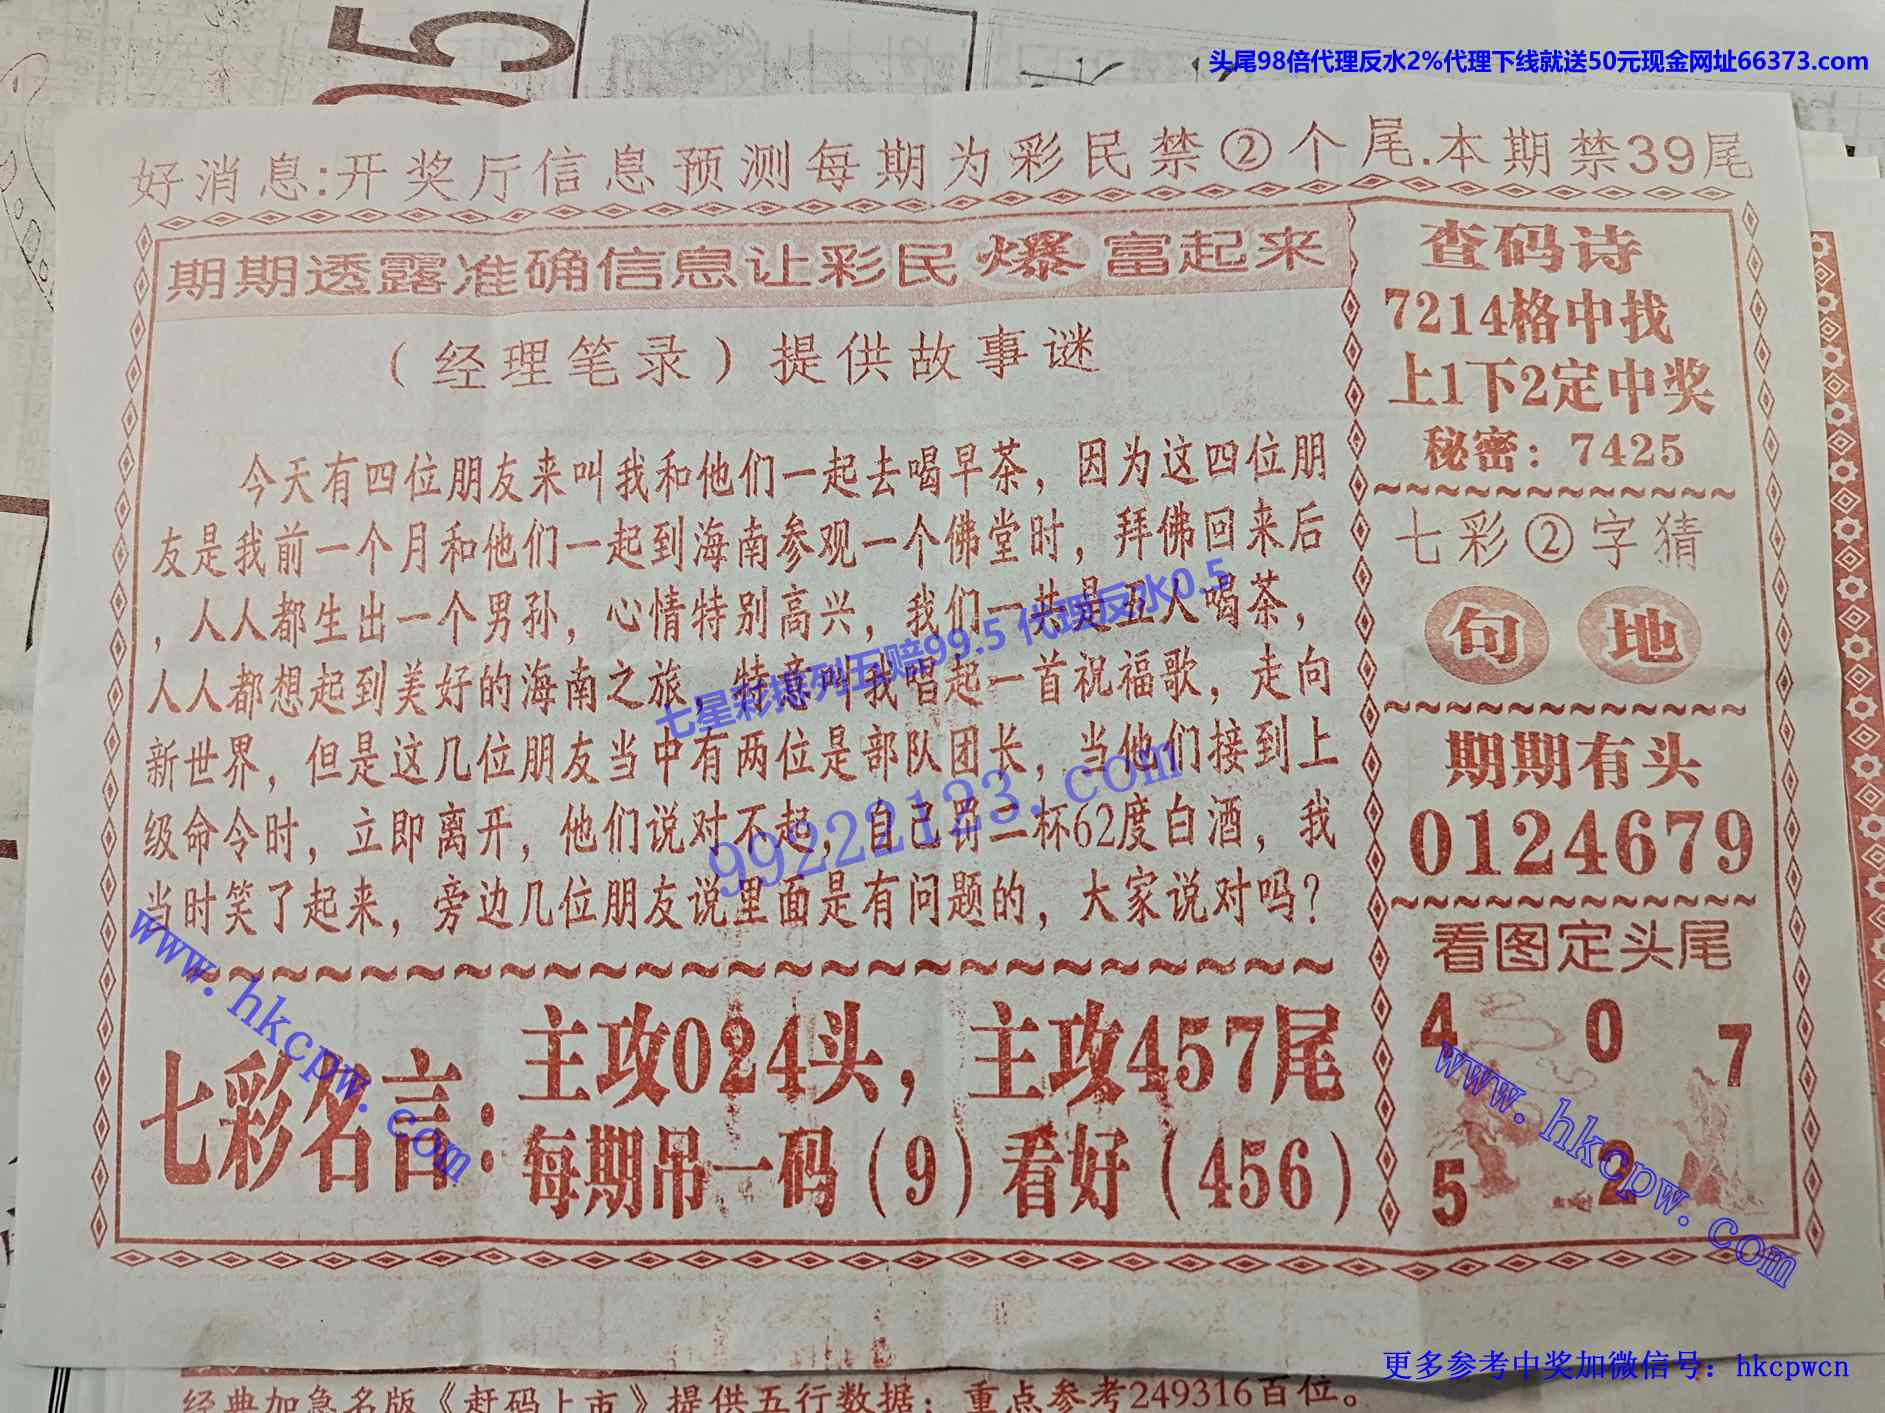 头尾98倍代理反水2%代理下线就送50元现金网址66373.com
好消息:开奖厅信息预测每期为彩民禁②个尾.本期禁39尾
期期透露准确信息让彩民爆富起来
（经理笔录）提供故事谜
今天有四位朋友来叫我和他们一起去喝早茶，因为这四位朋
友是我前一个月和他们一起到海南参观一个佛堂时，拜佛回来后
，人人都生出一个男孙，心情特别高兴，我们一共是五人喝茶，
人人都想起到美好的海南之旅，特意叫我唱起一首祝福歌，走向
新世界，但是这几位朋友当中有两位是部队团长，当他们接到上
级命令时，立即离开，他们说对不起，自己罚三杯62度白酒，我
当时笑了起来，旁边几位朋友说里面是有问题的，大家说对吗？
七彩名言：
主攻024头，主攻457尾
每期吊一码（9）看好（456）
查码诗
7214格中找
上1下2定中奖
秘密：7425
七彩②字猜
句 地
期期有头
0124679
看图定头尾
4 0 7
5 2
七星彩排列五赔99.5 代理反水0.5
99222123.com
www.hkcpw.com
www.hkcpw.com
更多参考中奖加微信号：hkcpwcn
经典加急名版《赶码上市》提供五行数据；重点参考249316百位。